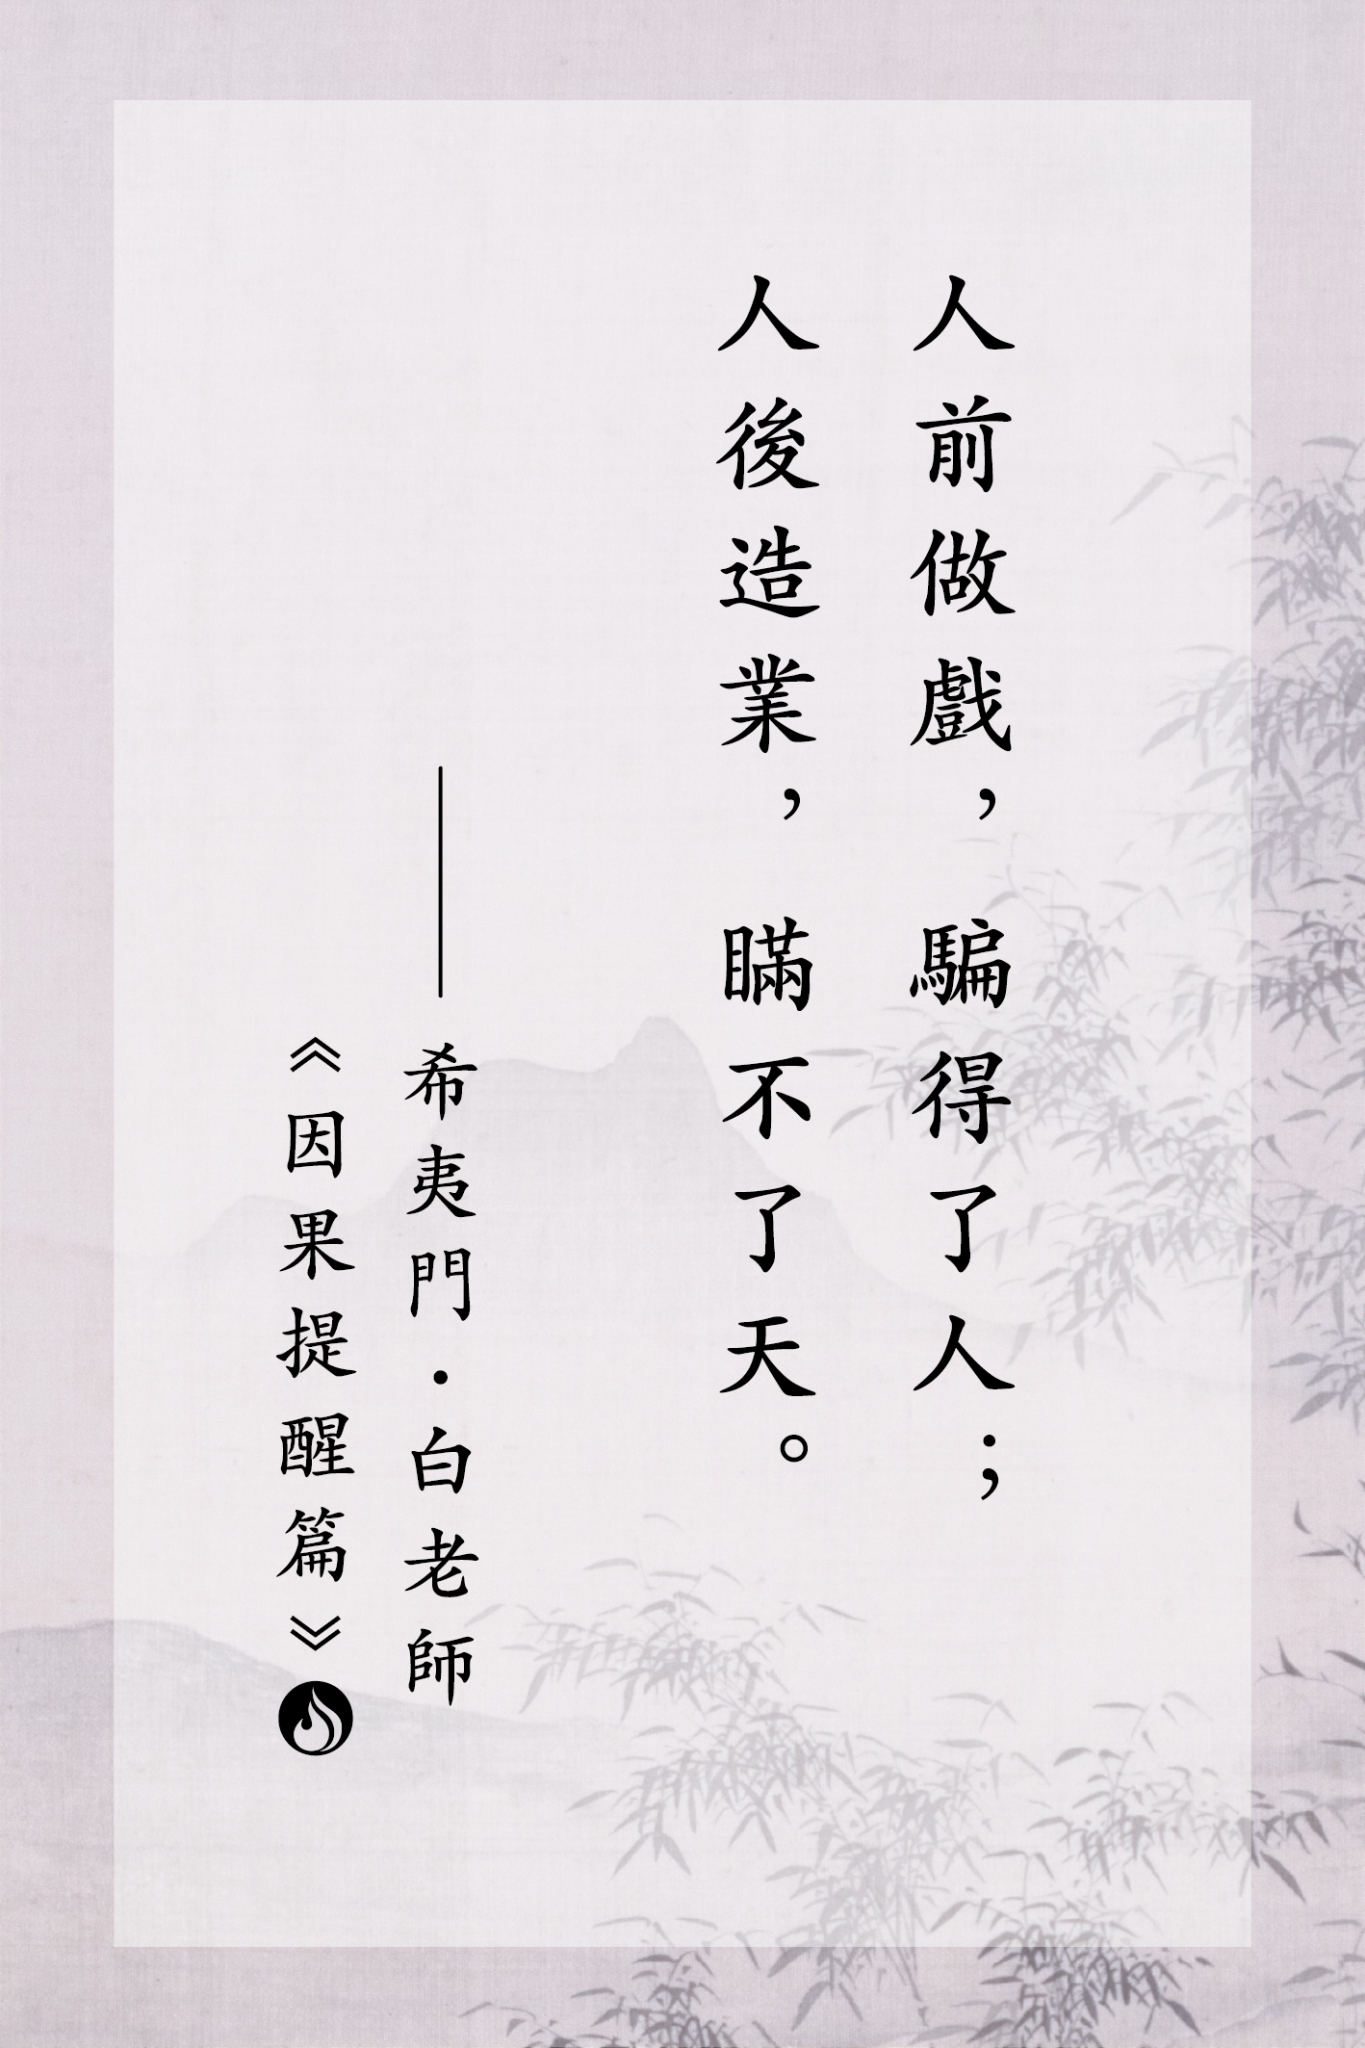 人前做戲，騙得了人；
人後造業，瞞不了天。
——希夷門．白老師
《因果提醒篇》